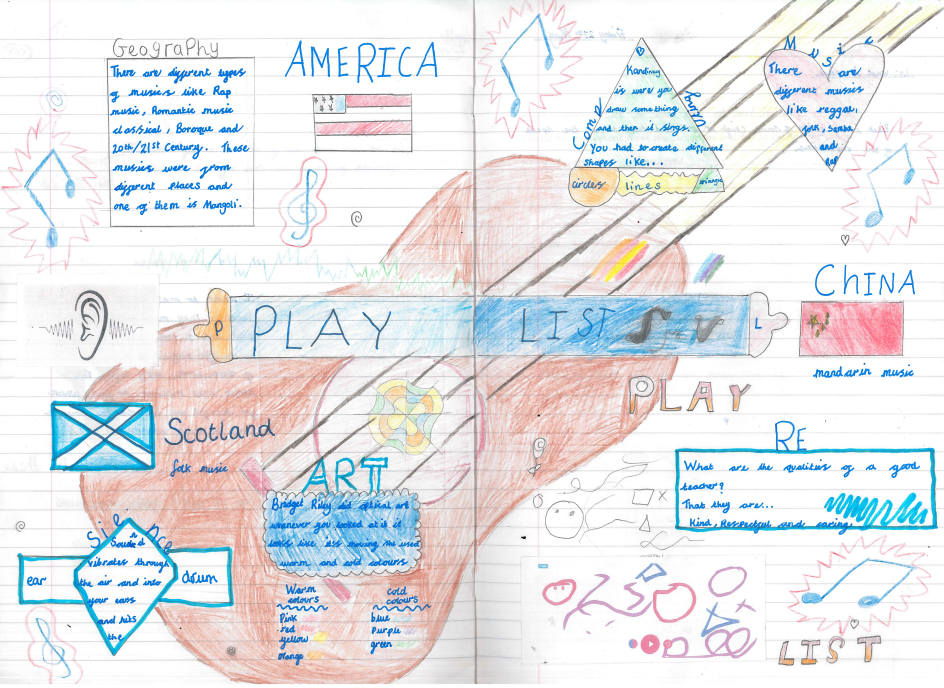 Geography
There are different types
of musics like Rap
music, Romantic music
classical, Boroque and
20th/21st Century. These
musics were from
different places and
one of them is Mangoli.
AMERICA
Computing
Kandinsky
is were you
draw something
and then it sings.
You had to create different
shapes like...
circles
lines
triangle
Music
There are
different musics
like reggai,
folk, Samba
and
Rap
P
PLAY
LIST
L
CHINA
mandarin music
PLAY
Scotland
folk music
ART
Bridget Riley did optical art
whenever you looked at it it
looks like its moving she used
warm and cold colours
Warm
colours
Pink
red
yellow
orange
cold
colours
blue
Purple
green
RE
What are the qualities of a good
teacher?
That they are...
Kind, Respectful and caring.
Science
Sound
vibrates through
the air and into
your ears
and hits
the
ear
drum
LIST